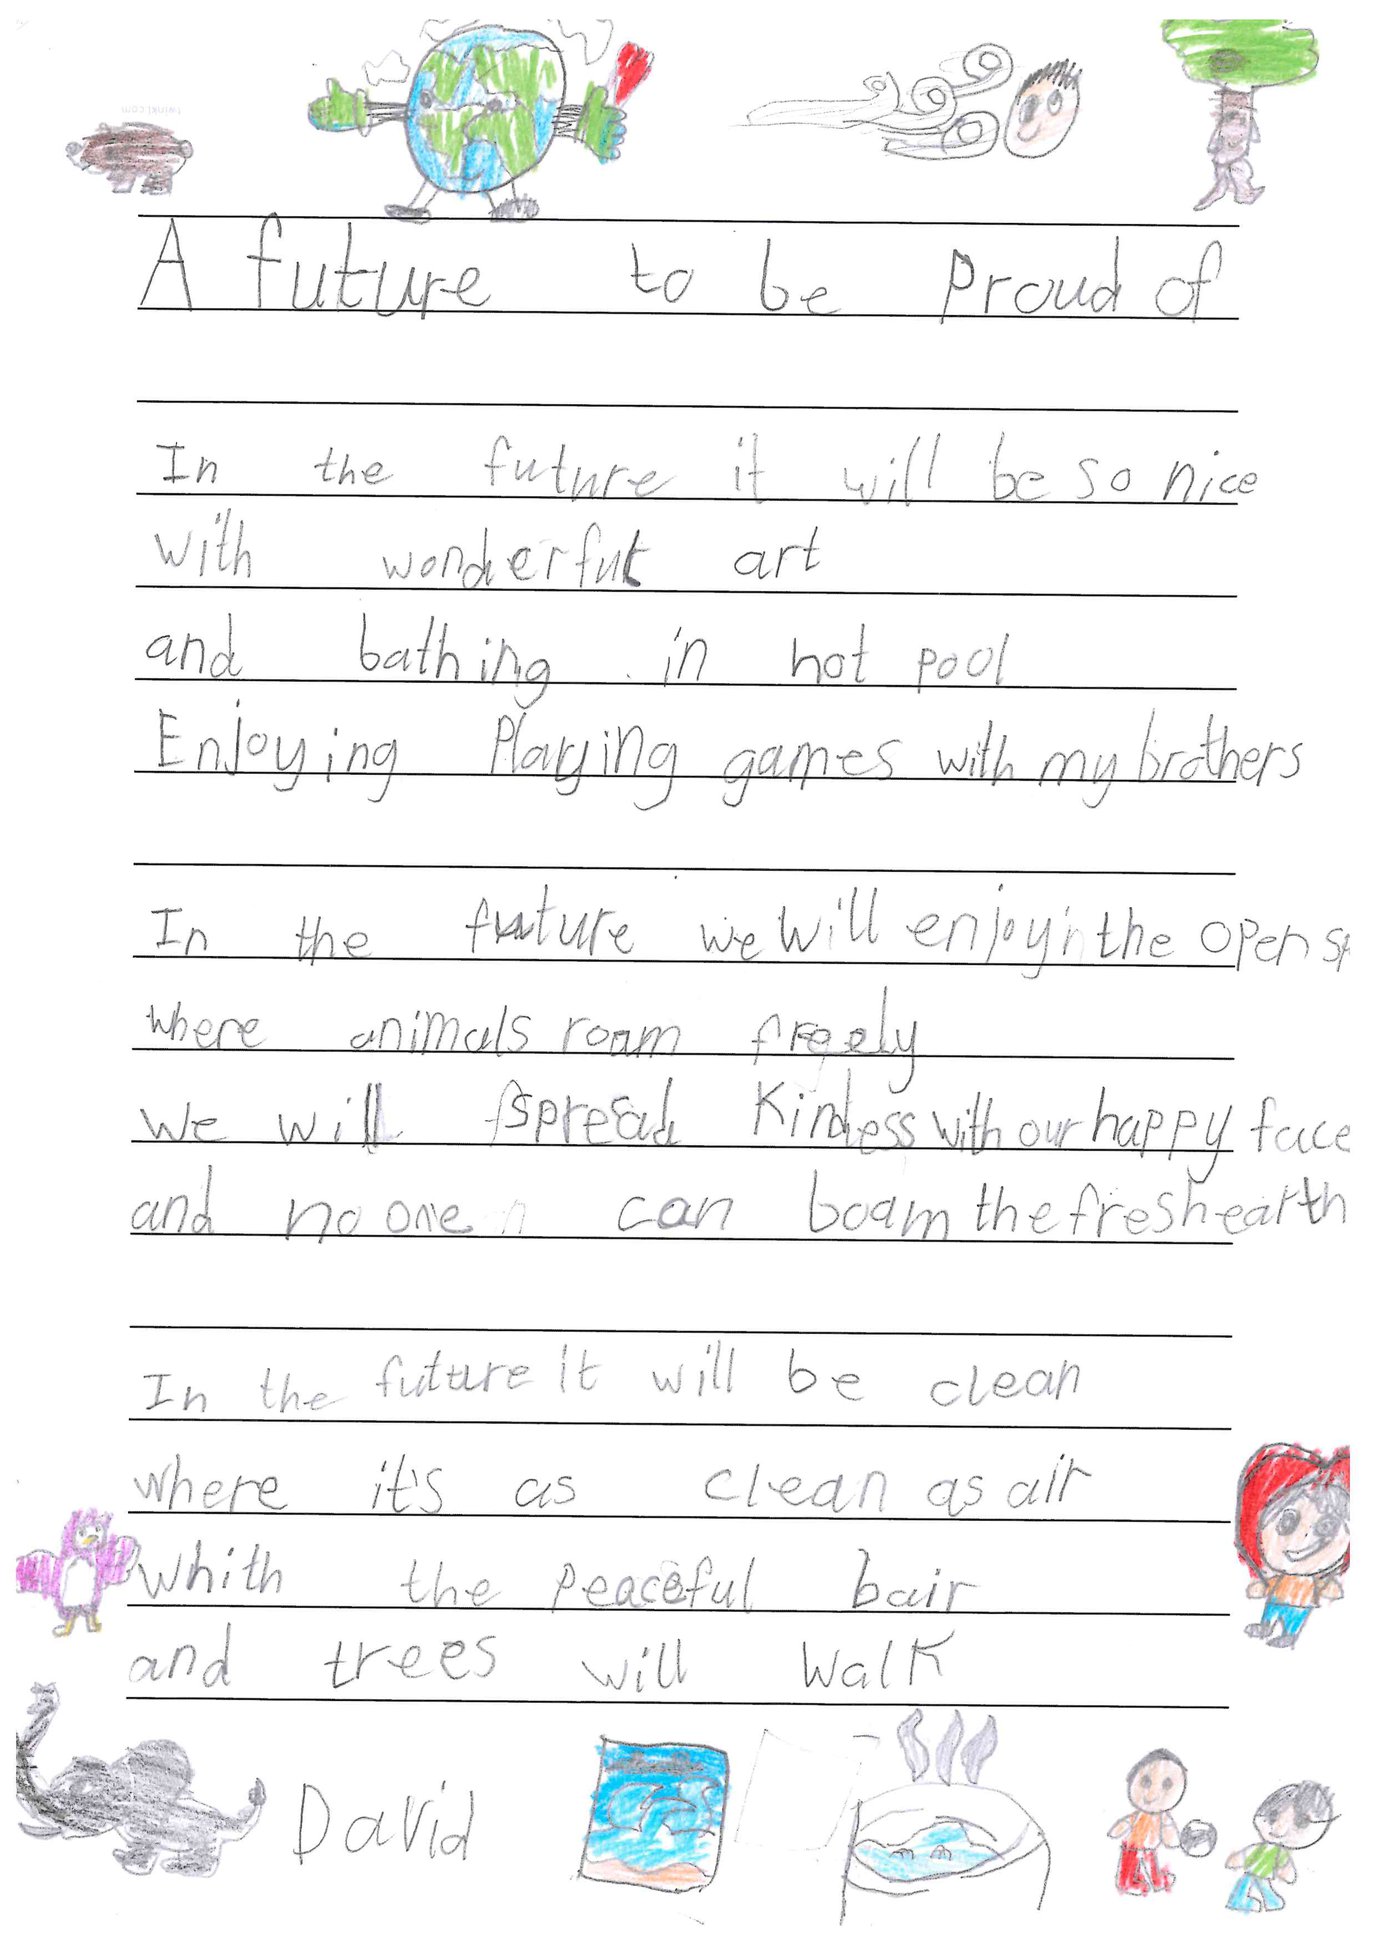 twinkl.com
A future to be Proud of
In the future it will be so nice
with wonderful art
and bathing in hot pool
Enjoying Playing games with my brothers
In the future we will enjoy the open sp
where animals roam freely
we will spread Kindess with our happy face
and no one can boam the fresh earth
In the future it will be clean
where it's as clean as air
Whith the peaceful bair
and trees will walk
David